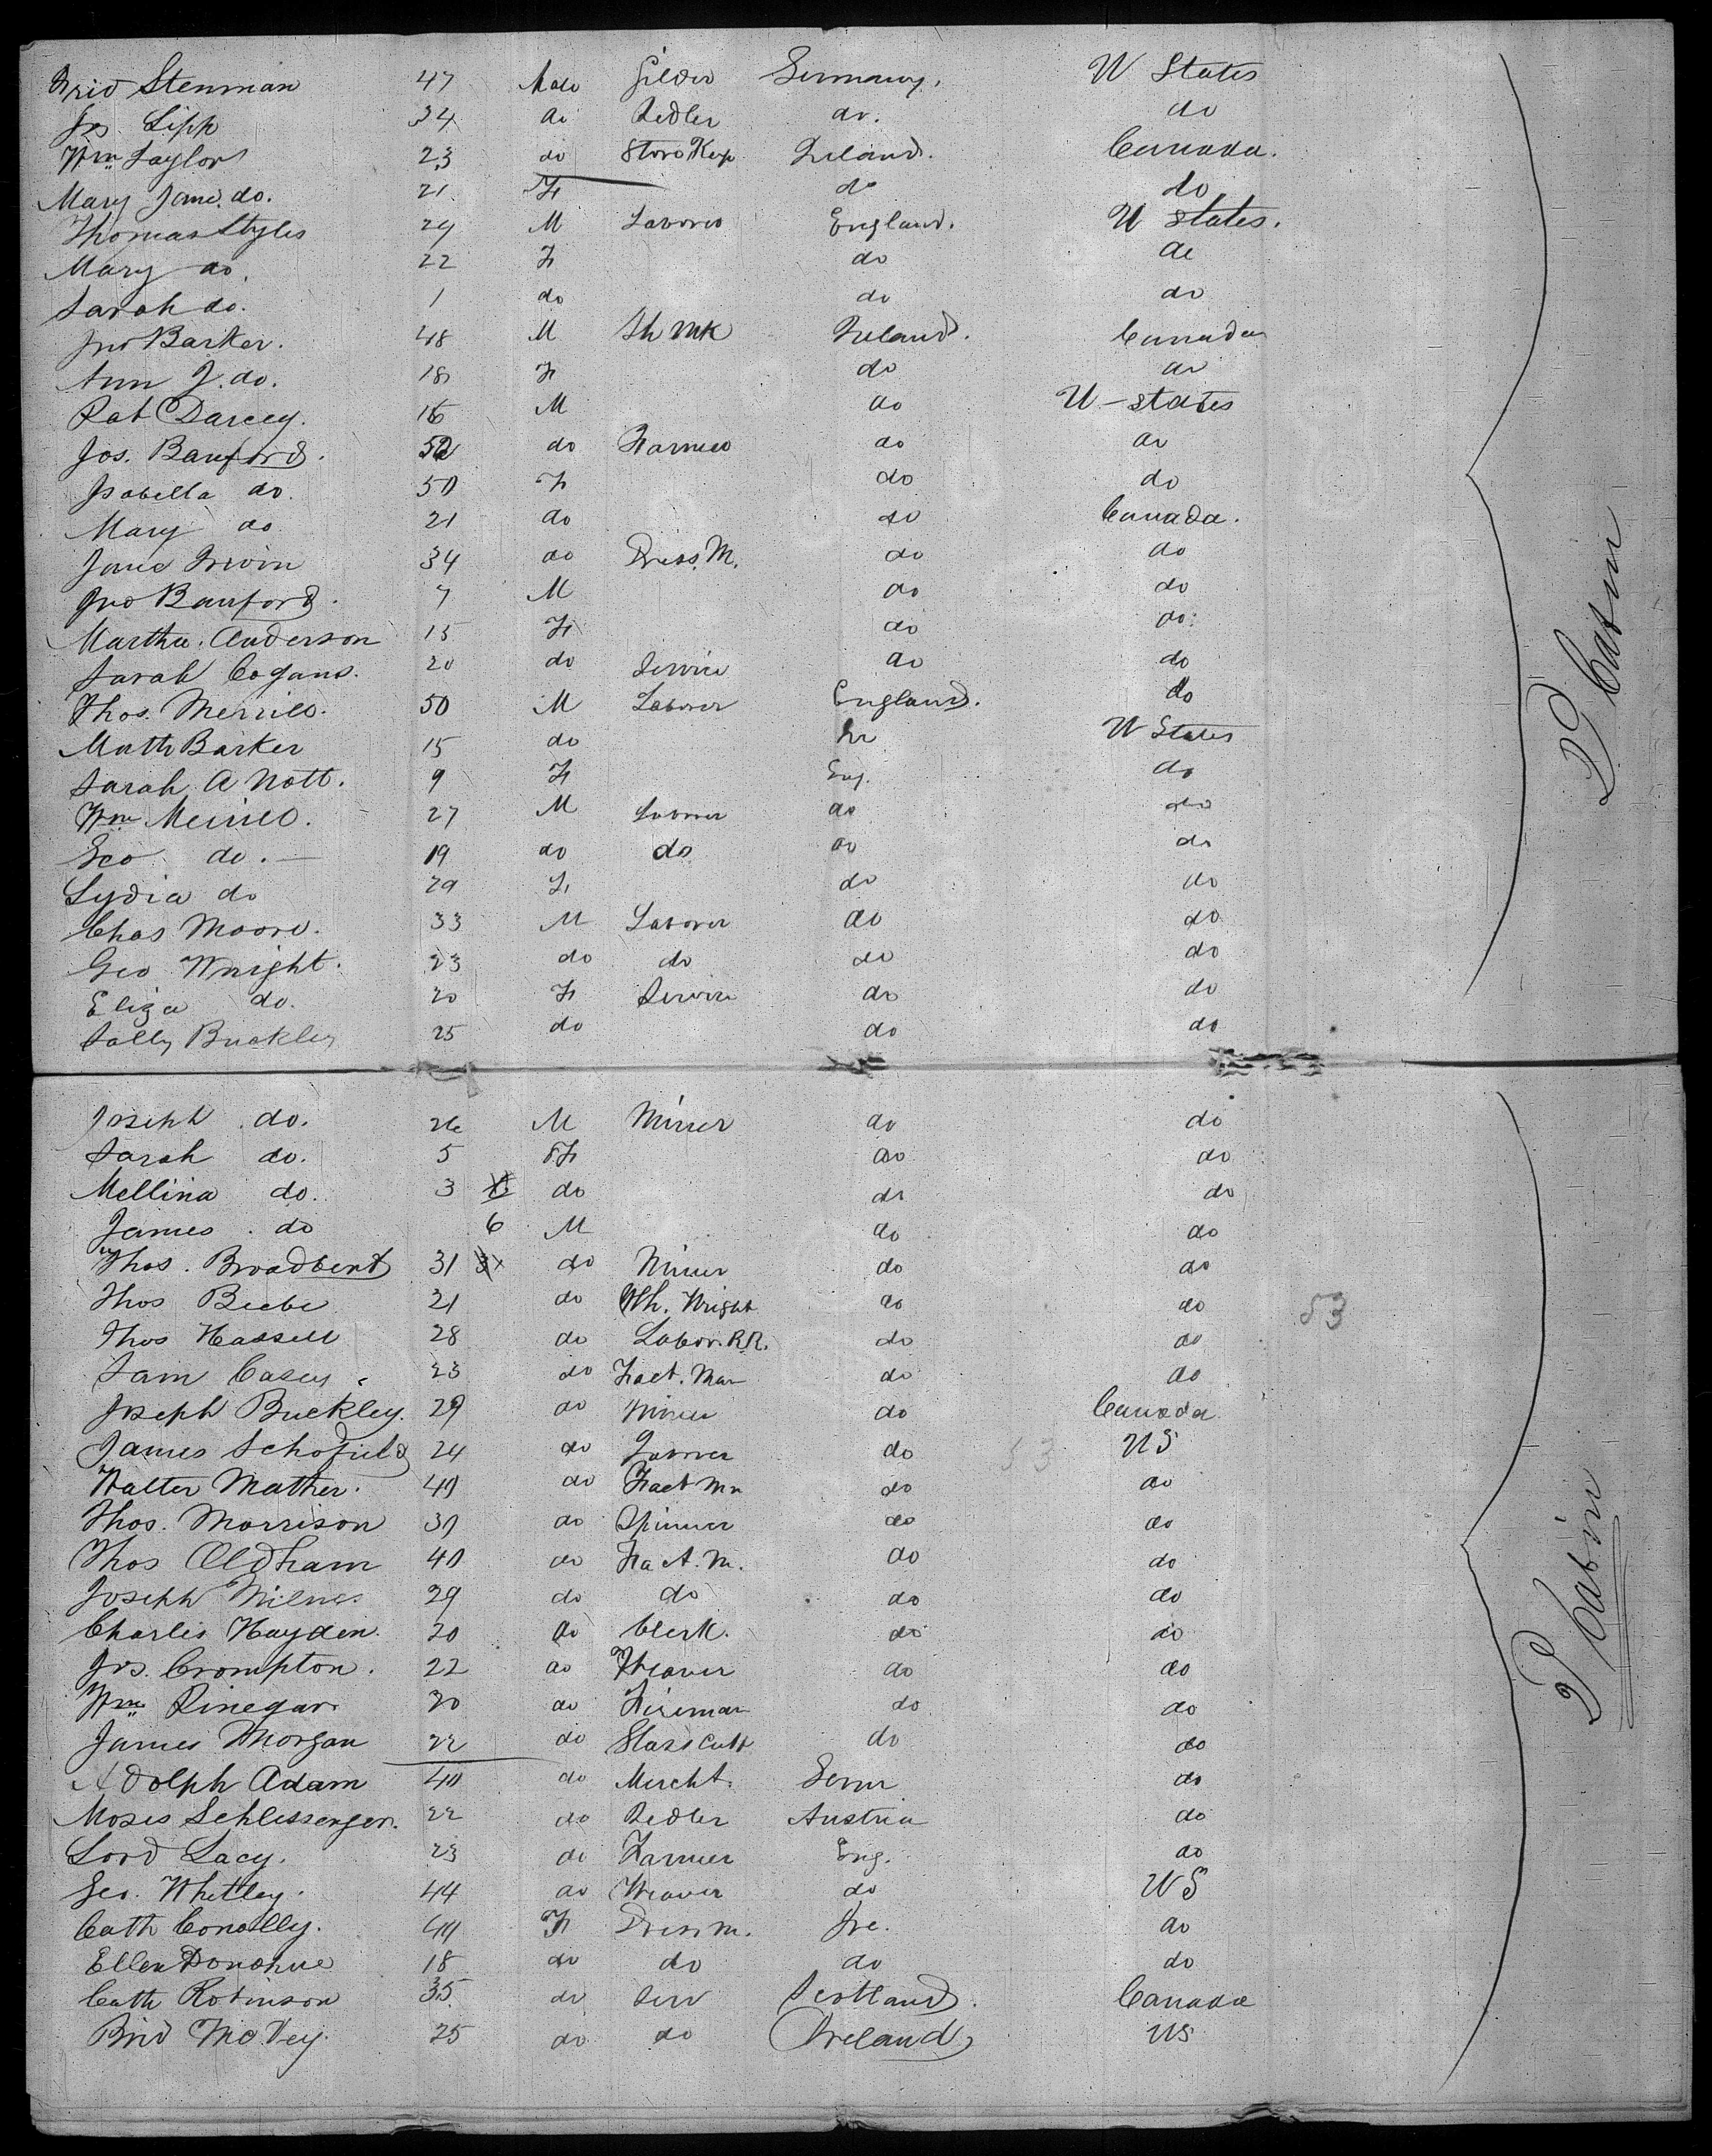 Frid Stenman 47 Mdo Gilder Germany. U States
Jos. Lipp 34 do Pedler do. do
Wm Taylor 23 do Store Kep Ireland. Canada.
Mary Jane do. 21 F do do
Thomas Styles 29 M Laborer England. U States.
Mary do. 22 F do do
Sarah do. 1 do do do
Jno Barker. 48 M Sh Mk Ireland. Canada
Ann J. do. 18 F do do
Rob Darcey. 16 M do U-States
Jos. Banford. 52 do Farmer do do
Isabella do. 50 F do do
Mary do 21 do do Canada.
Jane Irwin 34 do Dress. M. do do
Jno Banford. 7 M do do
Martha. Anderson 15 F do do.
Sarah Cogans. 20 do Service do do
Thos. Merrill. 50 M Laborer England. do
Math Barker 15 do Ir U States
Sarah A Nott. 9 F Eng. do
Wm Merrill. 27 M Laborer do do
Geo do. 19 do do do do
Lydia do 29 F do do
Chas Moore. 33 M Laborer do do
Geo Wright. 23 do do do do
Eliza do. 20 F Service do do
Sally Buckley 25 do do do
2d Cabin
Joseph do. 26 M Miner do do
Sarah do. 5 F do do
Mellina do. 3 do do do
James. do 6 M do do
Thos. Broadbent 31 do Miner do do
Thos Beebe 21 do Wh. Wright do do 53
Thos Hassell 28 do Labor. R.R. do do
Sam Casey. 23 do Fact. Man do do
Joseph Buckley. 29 do Miner do Canada
James Schofield 24 do Laborer do 53 US
Walter Mather. 40 do Fact Mn do do
Thos. Morrison 30 do Spinner do do
Thos Oldham 40 do Fact. M. do do
Joseph Milnes 29 do do do do
Charles Hayden. 20 do Clerk. do do
Jos. Crompton. 22 do Weaver do do
Wm Rinegar 30 do Fireman do do
James Morgan 22 do Glass Cutt do do
Adolph Adam 40 do Mercht. Germ do
Moses Schlessenger. 22 do Pedler Austria do
Lord Lacy. 23 do Farmer Eng. do
Geo. Whitley. 44 do Weaver do US
Cath Conolly. 40 F Dress m. Ire. do
Ellen Donohue 18 do do do do
Cath Robinson 35 do Serv Scotland. Canada
Brid McVey. 25 do do Ireland US
2d Cabin